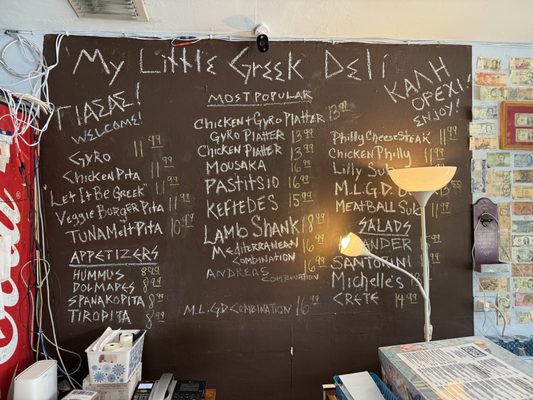 My Little Greek Deli
ΓΙΑΣΑΣ!
WELCOME!
Gyro 11.99
Chicken Pita 11.99
Let It Be Greek
Veggie Burger Pita
TUNA Melt Pita 10.99
APPETIZERS
HUMMUS 8.99
DOLMADES 8.99
SPANAKOPITA 8.99
TIROPITA 8.99
MOST POPULAR
Chicken + Gyro Platter 13.99
Gyro Platter 13.99
Chicken Platter 13.99
MOUSAKA 15.99
PASTITSIO 16.99
KEFTEDES 15.99
LAMB SHANK 18.99
Mediterranean
COMBINATION 16.99
ANDREAS COMBINATION 16.99
M.L.G.D COMBINATION 16.99
ΚΑΛΗ
ΟΡΕΧΙ!
ENJOY!
Philly CheeseSteak 11.99
Chicken Philly 11.99
Lilly Su
M.L.G.D
MEATBALL Sub
SALADS
ANDER
SANTORINI
Michelle's
CRETE 14.99
Coca